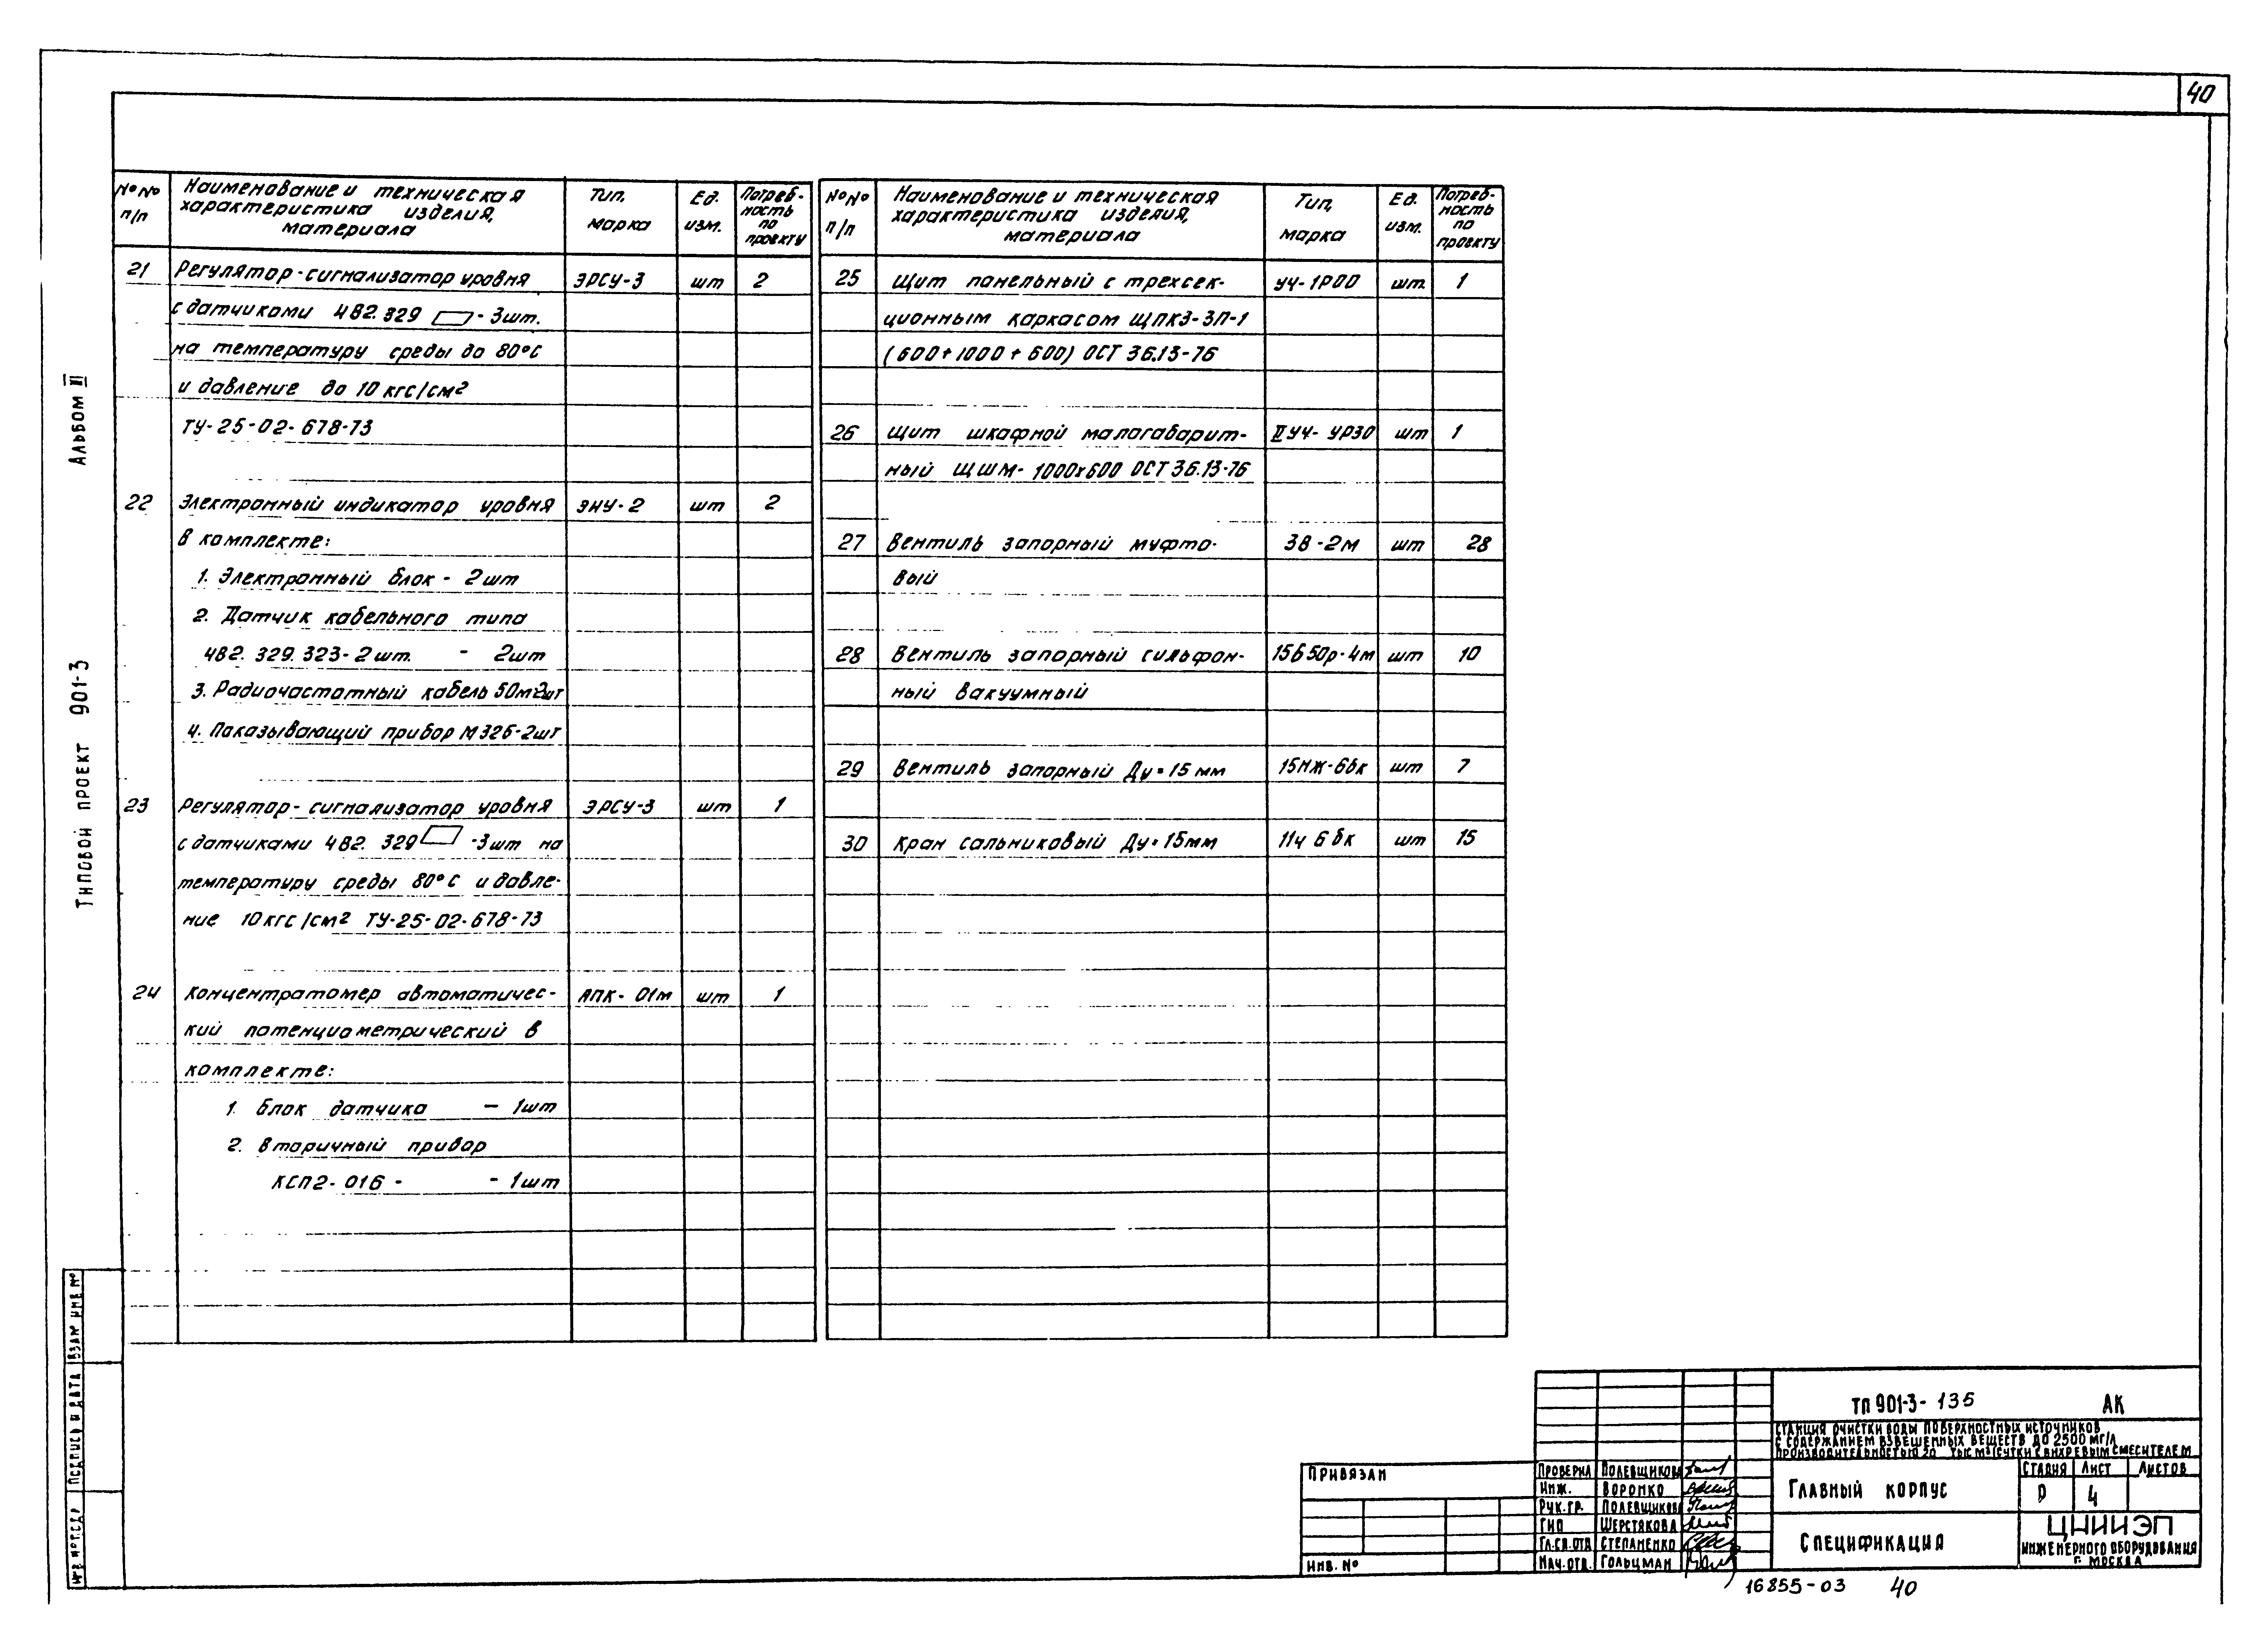 40
Альбом VI
Типовой проект 901-3
№№ п/п
Наименование и техническая
характеристика изделия,
материала
Тип, марка
Ед. изм.
Потреб-
ность
по
проекту
21 Регулятор-сигнализатор уровня ЭРСУ-3 шт 2
с датчиками 4В2.329 - 3шт.
на температуру среды до 80°С
и давление до 10 кгс/см2
ТУ-25-02-678-73
22 Электронный индикатор уровня ЭИУ-2 шт 2
в комплекте:
1. Электронный блок - 2шт
2. Датчик кабельного типа
4В2.329.323-2шт. - 2шт
3. Радиочастотный кабель 50м-2шт
4. Показывающий прибор М325-2шт
23 Регулятор-сигнализатор уровня ЭРСУ-3 шт 1
с датчиками 4В2.329 -3шт на
температуру среды 80°С и давле-
ние 10кгс/см2 ТУ-25-02-678-73
24 Концентратомер автоматичес- АПК-01м шт 1
кий потенциометрический в
комплекте:
1. Блок датчика - 1шт
2. Вторичный прибор
КСП2-016 - - 1шт
№№ п/п
Наименование и техническая
характеристика изделия,
материала
Тип, марка
Ед. изм.
Потреб-
ность
по
проекту
25 Щит панельный с трехсек- УЧ-1Р00 шт. 1
ционным каркасом ЩПК3-ЗП-1
(600+1000+600) ОСТ 36.13-76
26 Щит шкафной малогабарит- II УЧ-УР30 шт 1
ный ЩШМ-1000х600 ОСТ 36.13-76
27 Вентиль запорный муфто- 3В-2М шт 28
вый
28 Вентиль запорный сильфон- 15Б50р-4м шт 10
ный вакуумный
29 Вентиль запорный Ду=15мм 15нж-6бк шт 7
30 Кран сальниковый Ду=15мм 11ч 6бк шт 15
Взам инв №
Подпись и дата
Инв № подл
Привязан
Инв. №
Проверил Полевщикова
Инж. Воронко
Рук.гр. Полевщикова
ГИП Шерстякова
Гл.сп.отд Степаненко
Нач.отд. Гольцман
ТП 901-3-135 АК
Станция очистки воды поверхностных источников
с содержанием взвешенных веществ до 2500 мг/л
производительностью 20 тыс м3/сутки с вихревым смесителем
Главный корпус
Стадия Лист Листов
Р 4
Спецификация
ЦНИИЭП
инженерного оборудования
г. Москва
16855-03 40